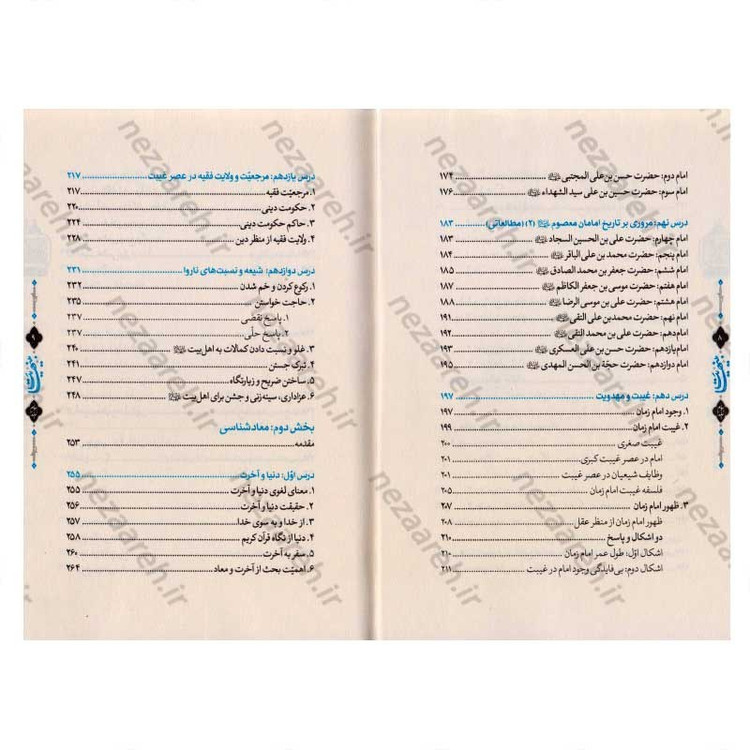 امام دوم: حضرت حسن بن علی المجتبی ........ ۱۷۴
امام سوم: حضرت حسین بن علی سید الشهداء ........ ۱۷۶
درس نهم: مروری بر تاریخ امامان معصوم (۲) (مطالعاتی) ........ ۱۸۳
امام چهارم: حضرت علی بن الحسین السجاد ........ ۱۸۳
امام پنجم: حضرت محمد بن علی الباقر ........ ۱۸۴
امام ششم: حضرت جعفر بن محمد الصادق ........ ۱۸۵
امام هفتم: حضرت موسی بن جعفر الکاظم ........ ۱۸۷
امام هشتم: حضرت علی بن موسی الرضا ........ ۱۸۸
امام نهم: حضرت محمدبن علی التقی ........ ۱۹۱
امام دهم: حضرت علی بن محمد النقی ........ ۱۹۲
امام یازدهم: حضرت حسن بن علی العسکری ........ ۱۹۳
امام دوازدهم: حضرت حجّة بن الحسن المهدی ........ ۱۹۵
درس دهم: غیبت و مهدویت ........ ۱۹۷
۱. وجود امام زمان ........ ۱۹۷
۲. غیبت امام زمان ........ ۱۹۹
غیبت صغری ........ ۲۰۰
امام در عصر غیبت کبری ........ ۲۰۱
وظایف شیعیان در عصر غیبت ........ ۲۰۱
فلسفه غیبت امام زمان ........ ۲۰۵
۳. ظهور امام زمان ........ ۲۰۷
ظهور امام زمان از منظر عقل ........ ۲۰۸
دو اشکال و پاسخ ........ ۲۱۰
اشکال اوّل: طول عمر امام زمان ........ ۲۱۰
اشکال دوم: بی‌فایدگی وجود امام در غیبت ........ ۲۱۱
۸
درس یازدهم: مرجعیّت و ولایت فقیه در عصر غیبت ........ ۲۱۷
۱. مرجعیّت فقیه ........ ۲۱۷
۲. حکومت دینی ........ ۲۲۰
۳. حاکم حکومت دینی ........ ۲۲۴
۴. ولایت فقیه از منظر دین ........ ۲۲۸
درس دوازدهم: شیعه و نسبت‌های ناروا ........ ۲۳۱
۱. رکوع کردن و خم شدن ........ ۲۳۲
۲. حاجت خواستن ........ ۲۳۵
۱. پاسخ نقضی ........ ۲۳۷
۲. پاسخ حلّی ........ ۲۳۷
۳. غلو و نسبت دادن کمالات به اهل‌بیت ........ ۲۴۰
۴. تبرک جستن ........ ۲۴۱
۵. ساختن ضریح و زیارتگاه ........ ۲۴۷
۶. عزاداری، سینه‌زنی و جشن برای اهل‌بیت ........ ۲۴۸
بخش دوم: معادشناسی
مقدمه ........ ۲۵۳
درس اوّل: دنیا و آخرت ........ ۲۵۵
۱. معنای لغوی دنیا و آخرت ........ ۲۵۵
۲. حقیقت دنیا و آخرت ........ ۲۵۶
۳. از خدا و به سوی خدا ........ ۲۵۷
۴. دنیا از نگاه قرآن کریم ........ ۲۵۸
۵. سفر به آخرت ........ ۲۶۰
۶. اهمیّت بحث از آخرت و معاد ........ ۲۶۴
۹
nezaareh.ir